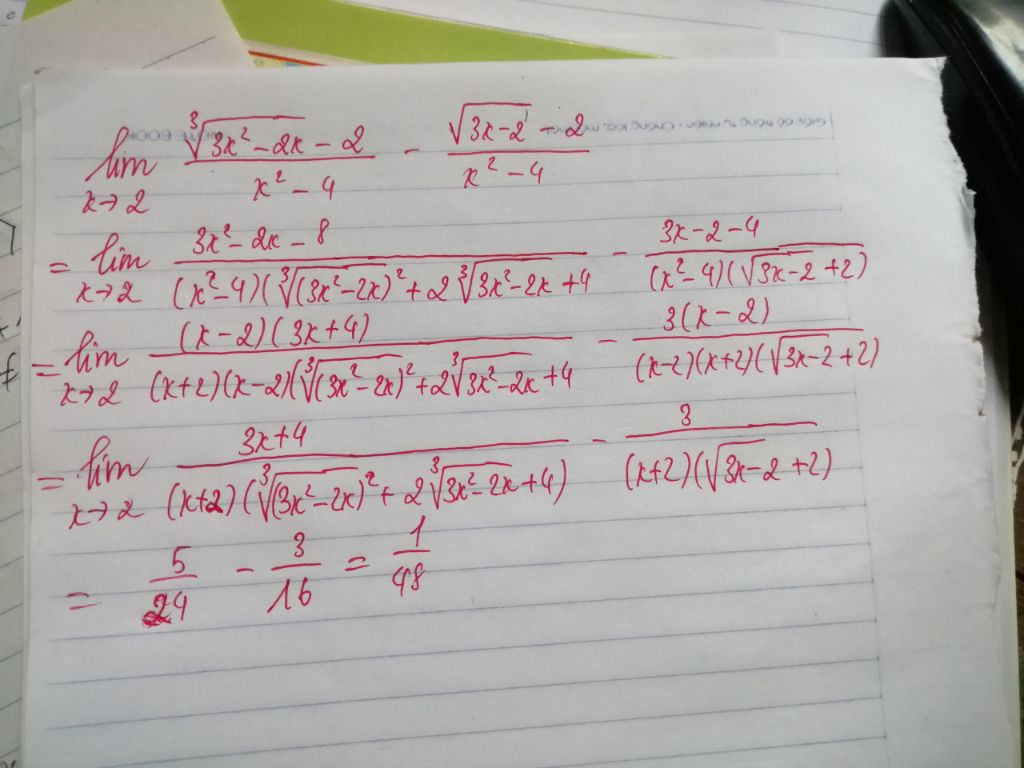 lim x→2 (∛(3x²-2x) - 2)/(x² - 4) - (√(3x-2) - 2)/(x² - 4)
= lim x→2 (3x² - 2x - 8)/((x²-4)(∛(3x²-2x)² + 2∛(3x²-2x) + 4) - (3x-2-4)/((x²-4)(√(3x-2) + 2))
= lim x→2 ((x-2)(3x+4))/((x+2)(x-2)(∛(3x²-2x)² + 2∛(3x²-2x) + 4) - (3(x-2))/((x-2)(x+2)(√(3x-2) + 2))
= lim x→2 (3x+4)/((x+2)(∛(3x²-2x)² + 2∛(3x²-2x) + 4)) - 3/((x+2)(√(3x-2) + 2))
= 5/24 - 3/16 = 1/48